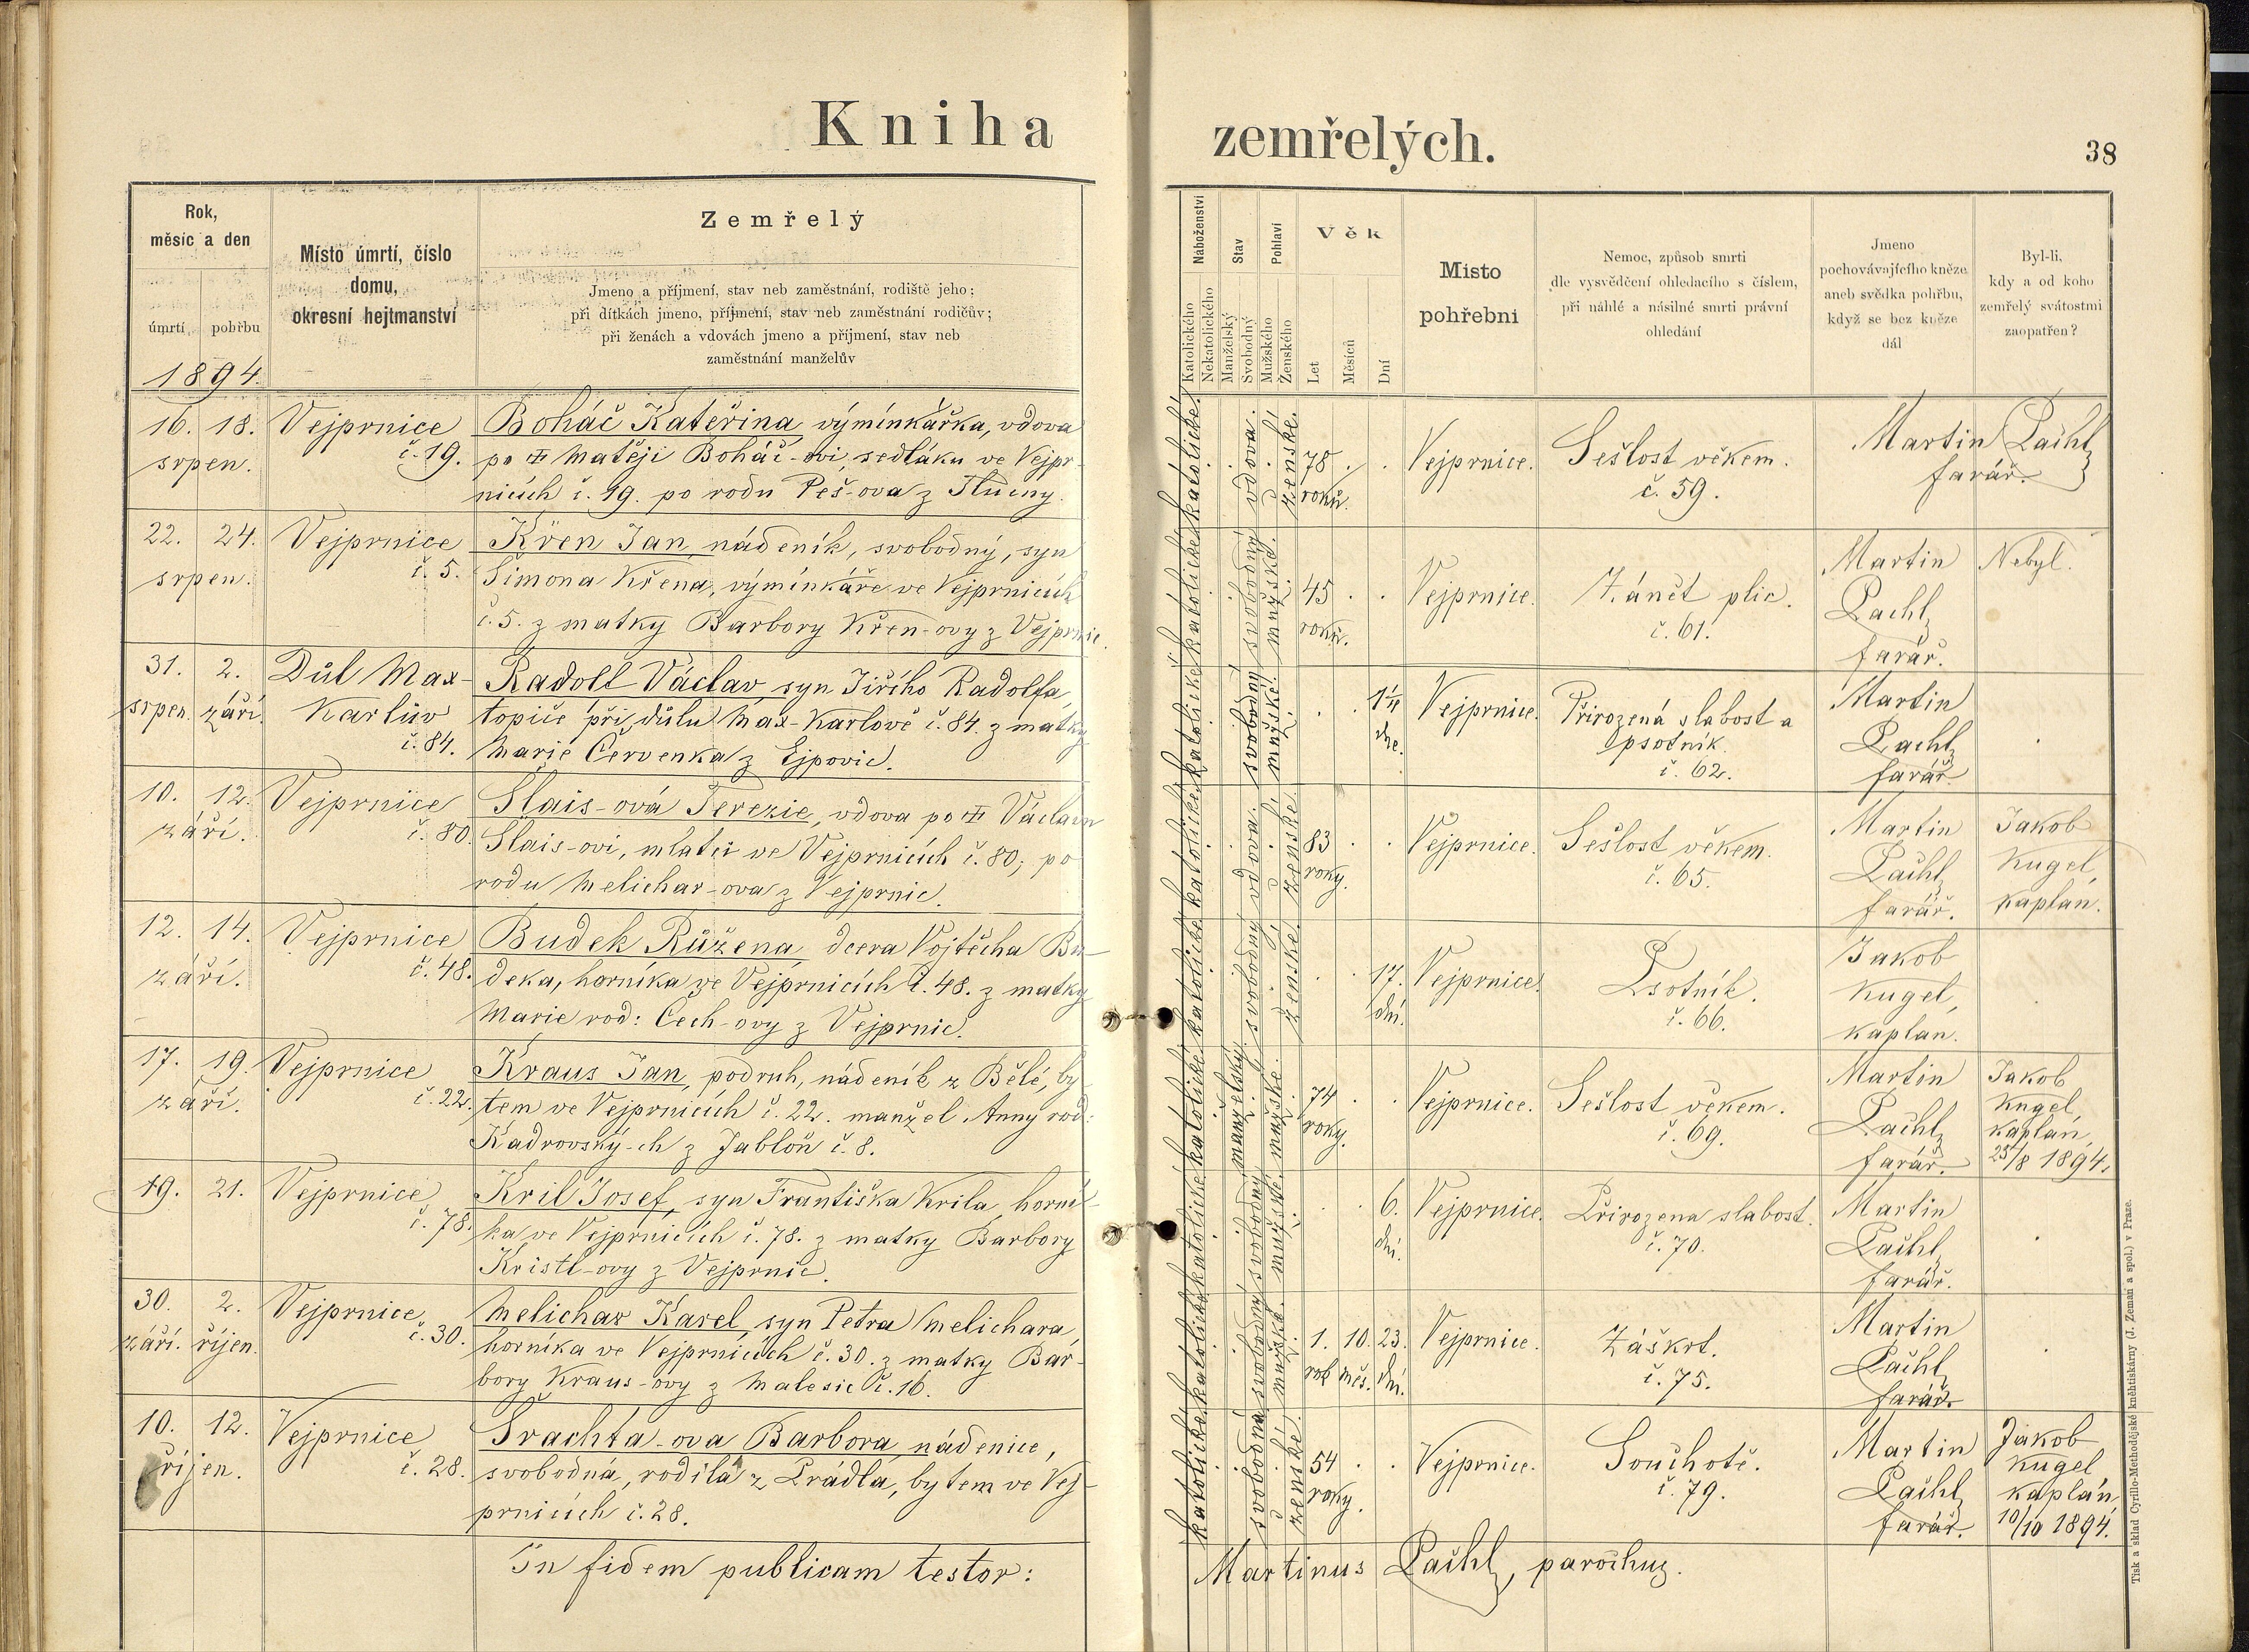 Kniha zemřelých.
38
Rok,
měsíc a den
úmrtí
pohřbu
1894.
Místo úmrtí, číslo
domu,
okresní hejtmanství
Zemřelý
Jmeno a příjmení, stav neb zaměstnání, rodiště jeho;
při dítkách jmeno, příjmení, stav neb zaměstnání rodičův;
při ženách a vdovách jmeno a příjmení, stav neb
zaměstnání manželův
Náboženství
Katolického
Nekatolického
Stav
Manželský
Svobodný
Pohlaví
Mužského
Ženského
Věk
Let
Měsíců
Dní
Místo
pohřební
Nemoc, způsob smrti
dle vysvědčení ohledacího s číslem,
při náhlé a násilné smrti právní
ohledání
Jmeno
pochovávajícího kněze
aneb svědka pohřbu,
když se bez kněze
dál
Byl-li,
kdy a od koho
zemřelý svátostmi
zaopatřen?
16. 18.
srpen.
Vejprnice
č. 19.
Boháč Kateřina výmínkářka, vdova
po Matěji Boháč-ovi, sedláku ve Vejpr-
nicích č. 19. po rodu Peš-ova z Tlučny.
katolické
vdova.
ženské.
78
roků.
Vejprnice.
Sešlost věkem.
č. 59.
Martin Pachl
farář.
22. 24.
srpen.
Vejprnice
č. 5.
Křen Jan, nádeník, svobodný, syn
Šimona Křena, výmínkáře ve Vejprnicích
č. 5. z matky Barbory Křen-ovy z Vejprnic.
katolické
svobodný
mužské.
45
roků.
Vejprnice.
Zánět plic.
č. 61.
Martin
Pachl
farář.
Nebyl.
31. 2.
srpen. září.
Důl Max-
Karlův
č. 84.
Radolf Václav, syn Jiřího Radolfa,
topiče při důlu Max-Karlově č. 84. z matky
Marie Červenka z Ejpovic.
katolické
svobodný
mužské.
1¼
dne.
Vejprnice.
Přirozená slabost a
psotník.
č. 62.
Martin
Pachl
farář
10. 12.
září.
Vejprnice
č. 80.
Slais-ová Terezie, vdova po Václavu
Slais-ovi, mlatci ve Vejprnicích č. 80, po
rodu Melichar-ova z Vejprnic.
katolické
vdova.
ženské.
83
roky.
Vejprnice.
Sešlost věkem.
č. 65.
Martin
Pachl
farář.
Jakob
Kugel,
kaplan.
12. 14.
září.
Vejprnice
č. 48.
Budek Růžena, dcera Vojtěcha Bu-
deka, horníka ve Vejprnicích č. 48. z matky
Marie rod: Cech-ovy z Vejprnic.
katolické
svobodný
ženské.
17.
dní.
Vejprnice.
Psotník.
č. 66.
Jakob
Kugel,
kaplan.
17. 19.
září.
Vejprnice
č. 22.
Kraus Jan, podruh, nádeník z Bělé, by-
tem ve Vejprnicích č. 22. manžel Anny rod:
Kadrovský-ch z Jabloň č. 8.
katolické
manželský.
mužské.
74
roky.
Vejprnice.
Sešlost věkem.
č. 69.
Martin
Pachl
farář.
Jakob
Kugel,
kaplan,
25/8 1894.
19. 21.
Vejprnice
č. 78.
Kril Josef, syn Františka Krila, horní-
ka ve Vejprnicích č. 78. z matky Barbory
Kristl-ovy z Vejprnic.
katolické
svobodný
mužské.
6.
dní.
Vejprnice.
Přirozena slabost.
č. 70.
Martin
Pachl
farář.
30. 2.
září. říjen.
Vejprnice
č. 30.
Melichar Karel, syn Petra Melichara,
horníka ve Vejprnicích č. 30. z matky Bar-
bory Kraus-ovy z Malesic č. 16.
katolické
svobodný
mužské.
1. 10. 23.
rok měs. dní.
Vejprnice.
Záškrt.
č. 75.
Martin
Pachl
farář.
10. 12.
říjen.
Vejprnice
č. 28.
Šrachta-ova Barbora, nádenice,
svobodná, rodila z Prádla, bytem ve Vej-
prnicích č. 28.
katolické
svobodná
ženské.
54
roky.
Vejprnice.
Souchotě.
č. 79.
Martin
Pachl
farář.
Jakob
Kugel
kaplán,
10/10 1894.
In fidem publicam testor:
Martinus Pachl, parochus.
Tisk a sklad Cyrillo-Methodějské knihtiskárny (J. Zeman a spol.) v Praze.